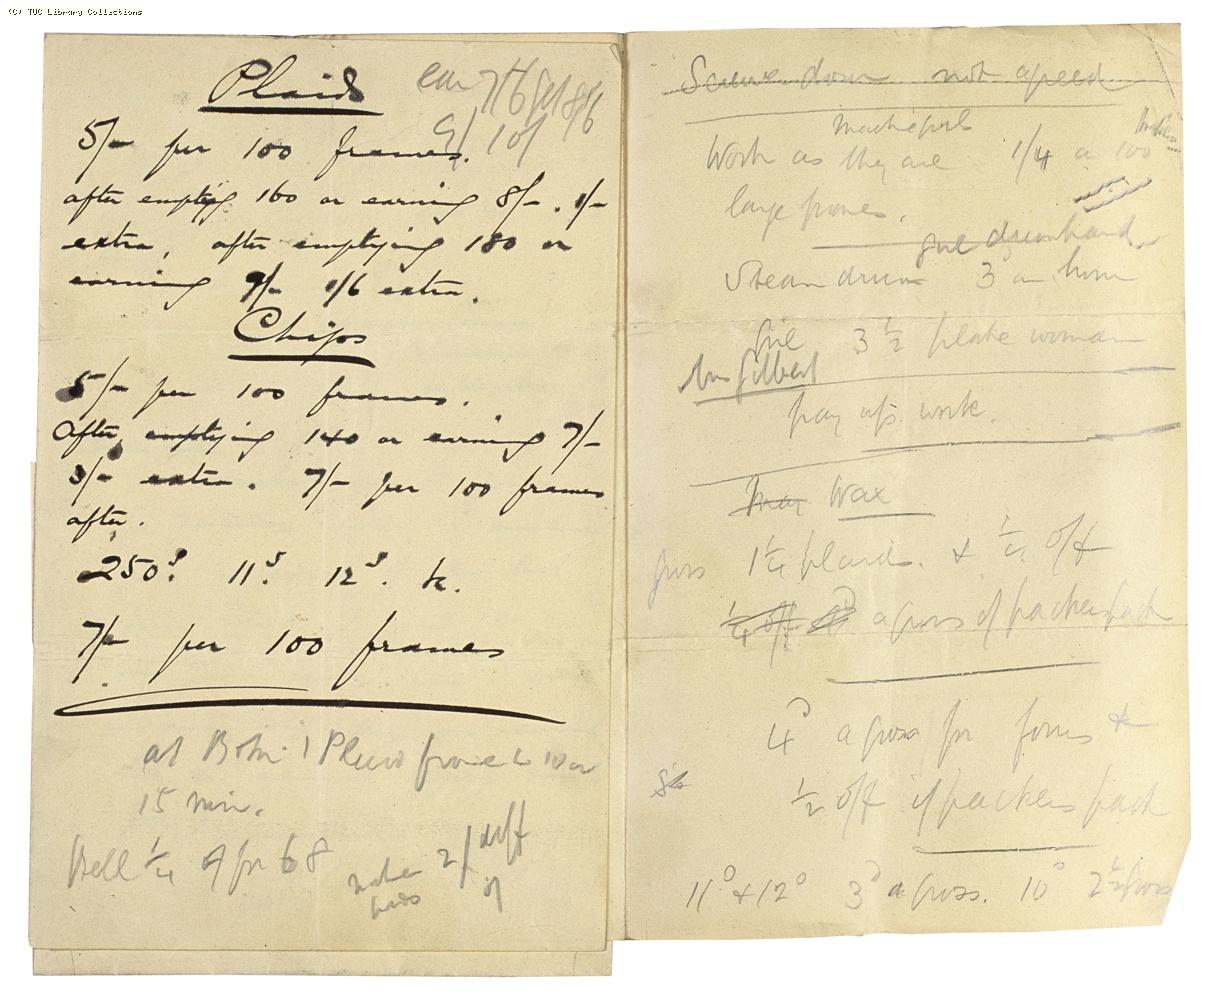 (C) TUC Library Collections
Plaids
can 7/6 get 8/6
9/ 10/
5/- per 100 frames.
after emptying 160 or earning 8/-. 1/-
extra, after emptying 180 or
earning 9/- 1/6 extra.
Chips
5/- per 100 frames.
After emptying 140 or earning 7/-
3/- extra. 7/- per 100 frames
after.
250s. 11s. 12s. &c.
7/- per 100 frames
at 1 frame 10 or
15 min.
Bell 1/4 9 for 68
2/ diff
of
Screw down not agreed
Work as they are 1/4 a 100
large frames.
Steam drum 3 an hour
girl 3 1/2 plate woman
Mrs Gilbert
pay up work.
Wax
gross 1 1/4 plaids. & 1/4 off
1/4 off a gross if packers pack
4d a gross for &
1/2 off if packers pack
11s & 12s 3d a gross. 10s 2 1/2 gross